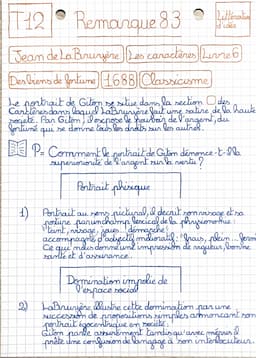 T12
Remarque 83
Littérature d'idées
Jean de La Bruyère
Les caractères
Livre 6
Des biens de fortune
1688
Classicisme
Le portrait de Giton se situe dans la section des
Caractères dans laquel LaBruyère fait une satire de la haute
société. Par Giton, il expose le pouvoir de l'argent, du
fortuné qui se donne tous les droits sur les autres.
P= Comment le portrait de Giton dénonce-t-il la
supériorité de l'argent sur la vertu ?
Portrait physique
1) Portrait au sens pictural, il décrit son visage et sa
posture par un champ lexical de la physionomie :
"teint, visage, joues démarche"
accompagnés d'adjectif mélioratif : "frais, plein ... ferme
Ce qui nous donne une impression de vigueur, bonne
santé et d'assurance.
Domination impolie de
l'espace social
2) LaBruyère illustre cette domination par une
succession de propositions simples annoncant son
portrait égocentrique en société.
Giton parle assurément tandis qu'avec mépris il
prête une confusion de langage à son interlocuteur.